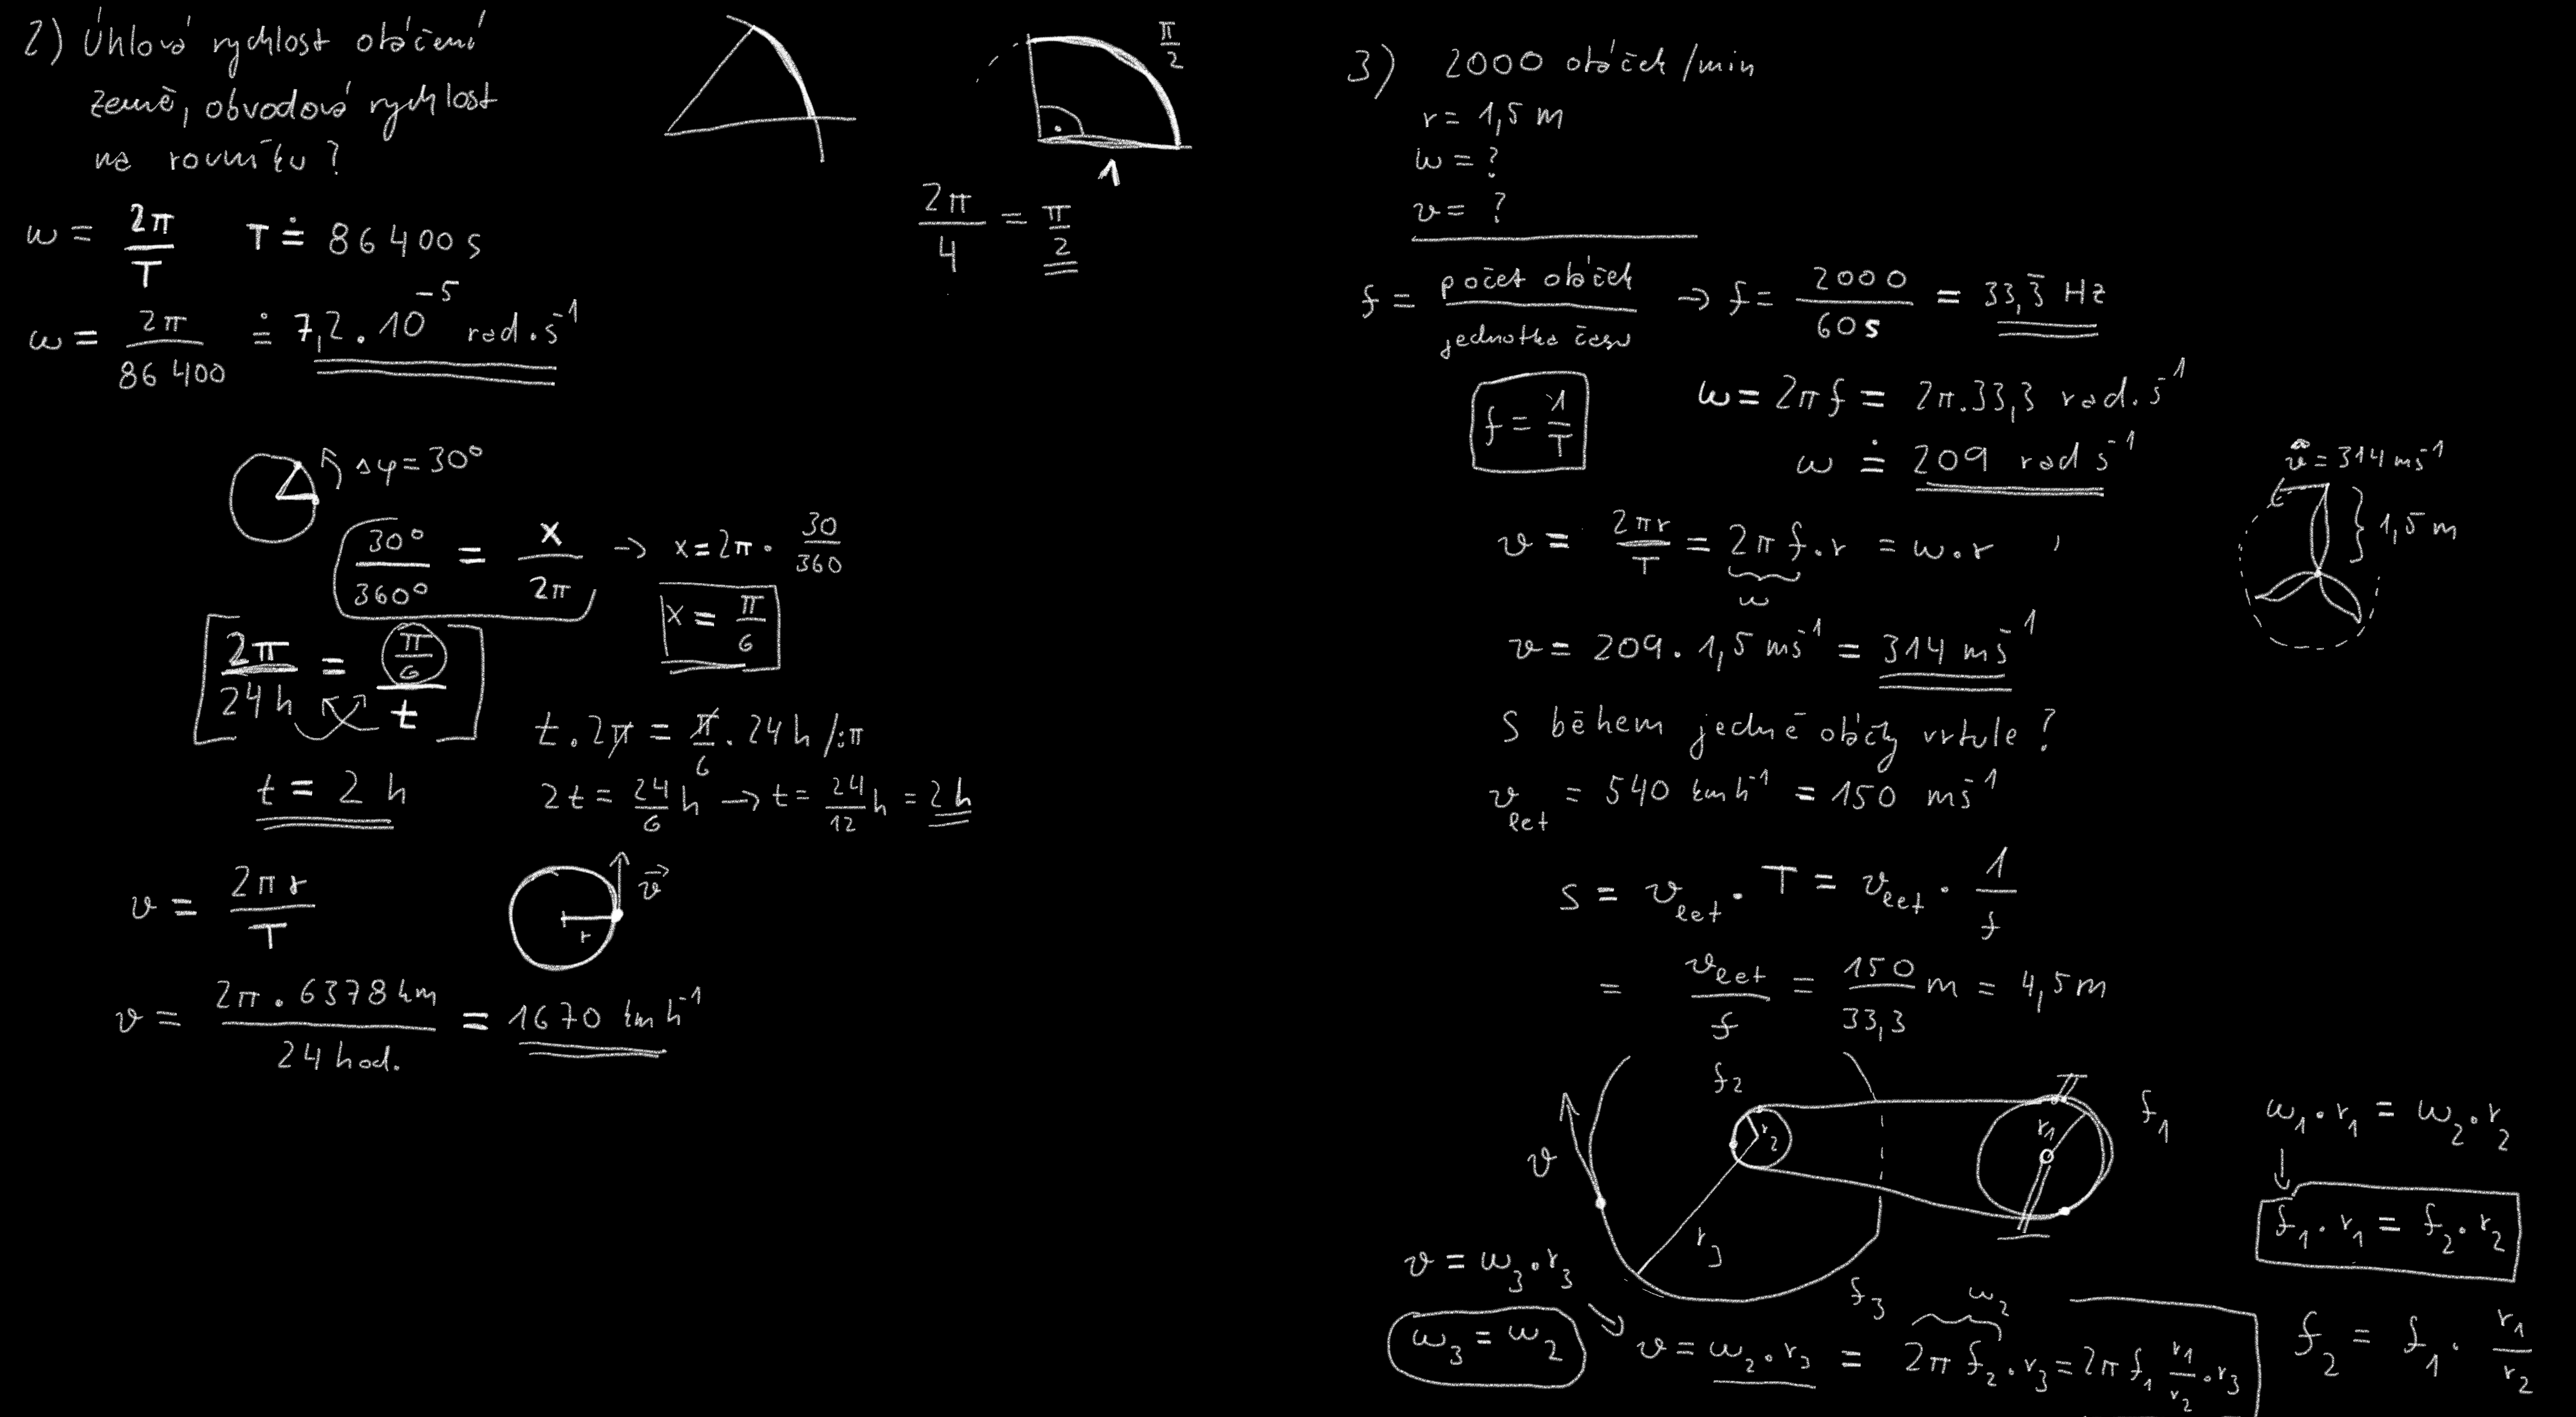 2) Úhlová rychlost otáčení
Země, obvodová rychlost
na rovníku?
ω = 2π/T   T ≐ 86 400 s
ω = 2π/86 400 ≐ 7,2 . 10^-5 rad . s^-1
π/2
1
2π/4 = π/2
Δφ = 30°
30°/360° = x/2π → x = 2π · 30/360
x = π/6
2π/24 h = (π/6)/t
t . 2π = π/6 . 24 h /:π
t = 2 h
2t = 24/6 h → t = 24/12 h = 2 h
v = 2πr/T
v⃗
r
v = 2π . 6378 km/24 hod. = 1670 km h^-1
3) 2000 otáček /min
r = 1,5 m
ω = ?
v = ?
f = počet otáček/jednotka času → f = 2000/60 s = 33,3̄ Hz
f = 1/T
ω = 2πf = 2π . 33,3 rad . s^-1
ω ≐ 209 rad s^-1
v⃗ = 314 ms^-1
1,5 m
v = 2πr/T = 2πf . r = ω . r
ω
v = 209 . 1,5 ms^-1 = 314 ms^-1
s během jedné otáčky vrtule?
v_let = 540 km h^-1 = 150 ms^-1
s = v_let . T = v_let · 1/f
= v_let/f = 150/33,3 m = 4,5 m
f2
r2
r1
f1
v
r3
f3
ω1 . r1 = ω2 . r2
↓
f1 . r1 = f2 . r2
v = ω3 . r3
ω3 = ω2
ω2
v = ω2 . r3 = 2πf2 . r3 = 2πf1 r1/r2 . r3
f2 = f1 . r1/r2